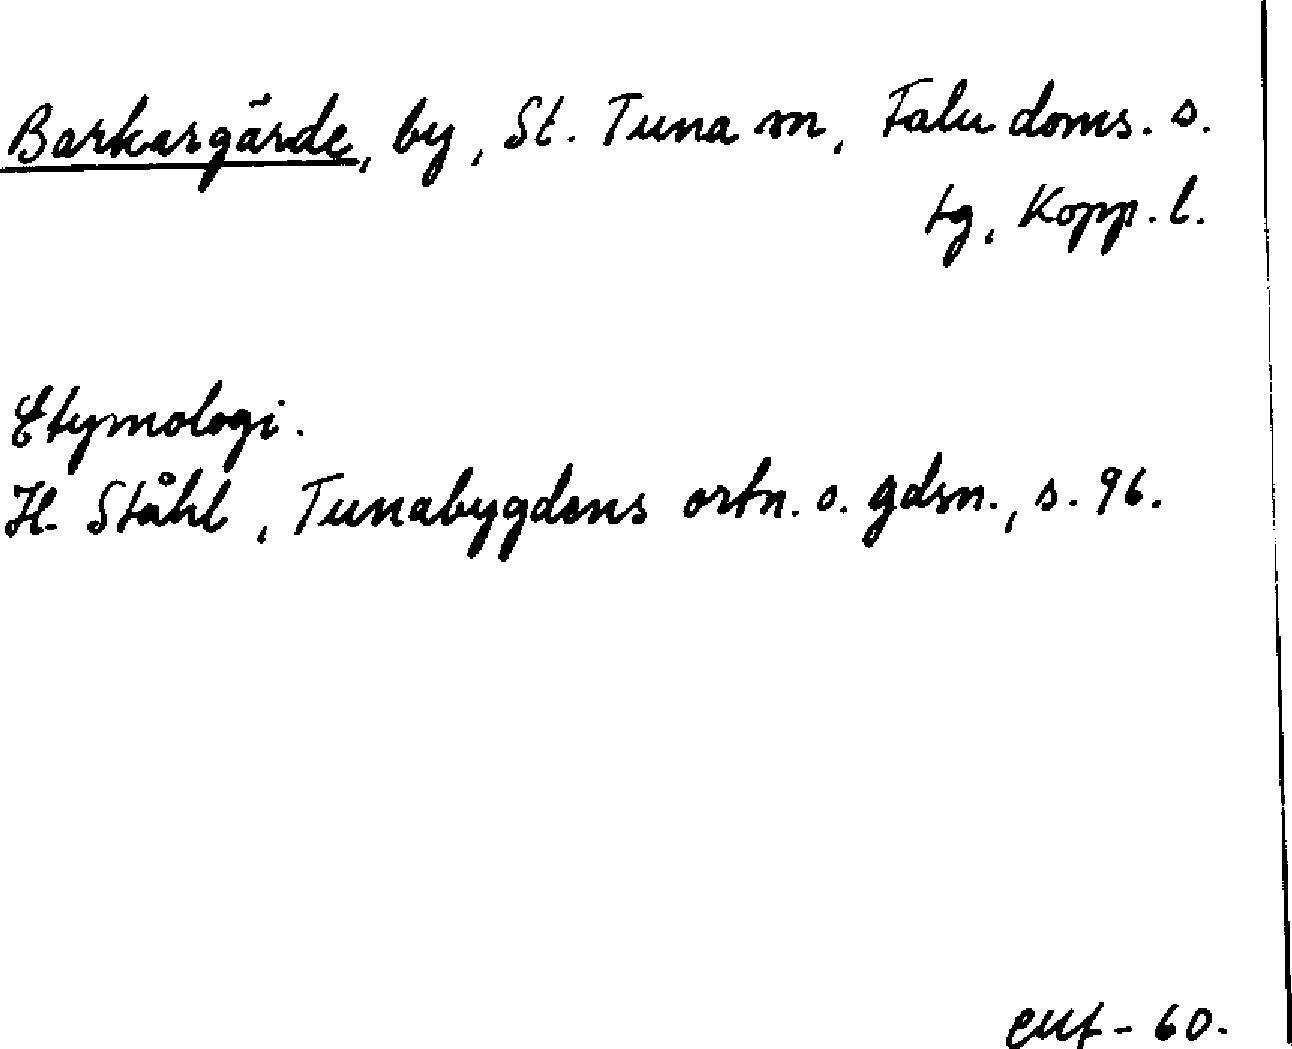 Barkargärde, by, St. Tuna sn, Falu doms. s.
tg, Kopp. l.
Etymologi.
H. Ståhl, Tunabygdens ortn. o. gdsn., s. 96.
60.